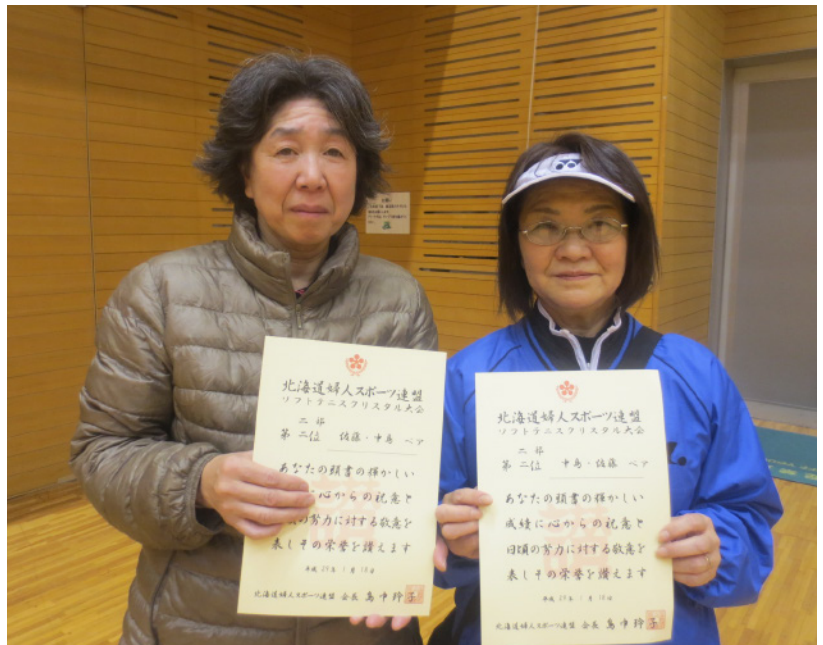 北海道婦人スポーツ連盟
ソフトテニスクリスタル大会
二部
第二位 佐藤・中島 ペア
あなたの頭書の輝かしい
に心からの祝意と
の努力に対する敬意を
表しその栄誉を讃えます
北海道婦人スポーツ連盟 会長
北海道婦人スポーツ連盟
ソフトテニスクリスタル大会
二部
第二位 中島・佐藤 ペア
あなたの頭書の輝かしい
成績に心からの祝意と
日頃の努力に対する敬意を
表しその栄誉を讃えます
北海道婦人スポーツ連盟 会長